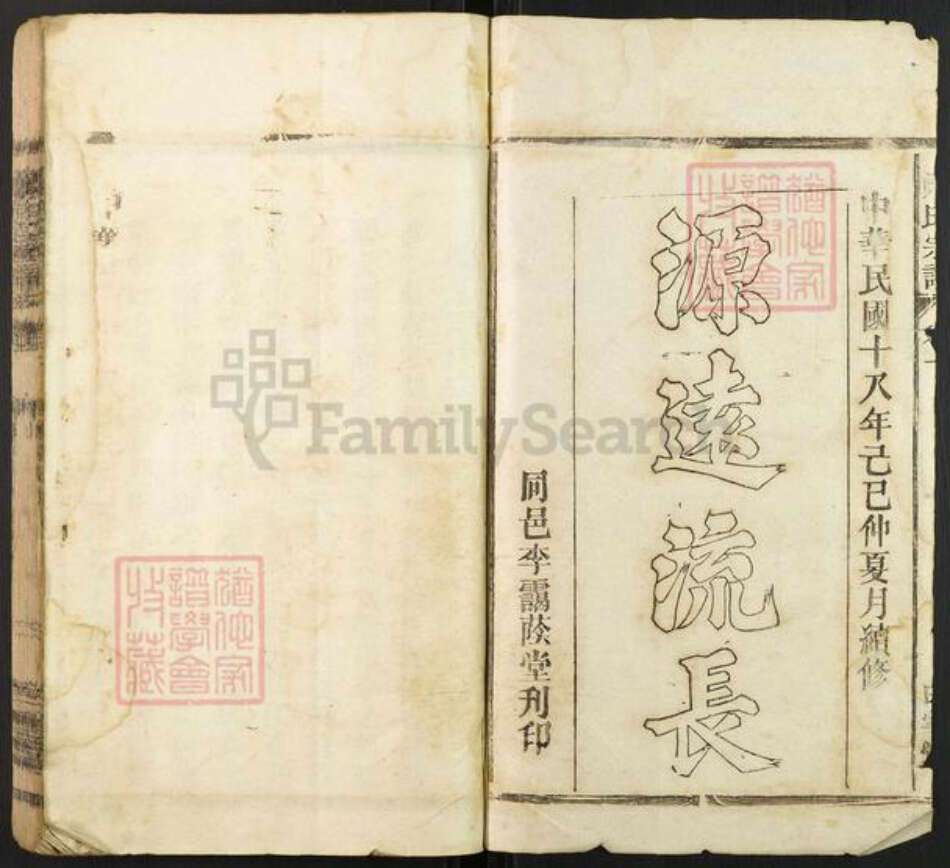 氏宗譜
中華民國十八年己巳仲夏月續修
源遠流長
同邑李靄蔭堂刋印
猶他家譜學會收藏
猶他家譜學會收藏
FamilySearch